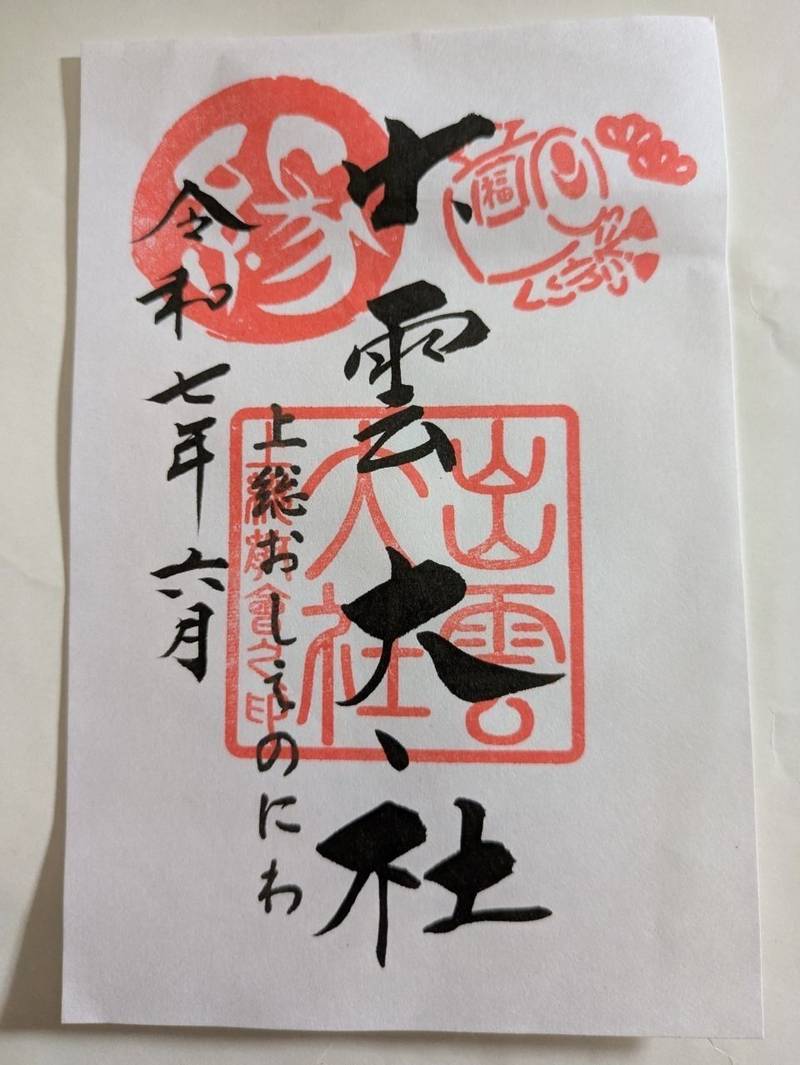 福
出雲大社
出雲
大社
上総教會之印
上総おしえのにわ
令和七年六月
縁